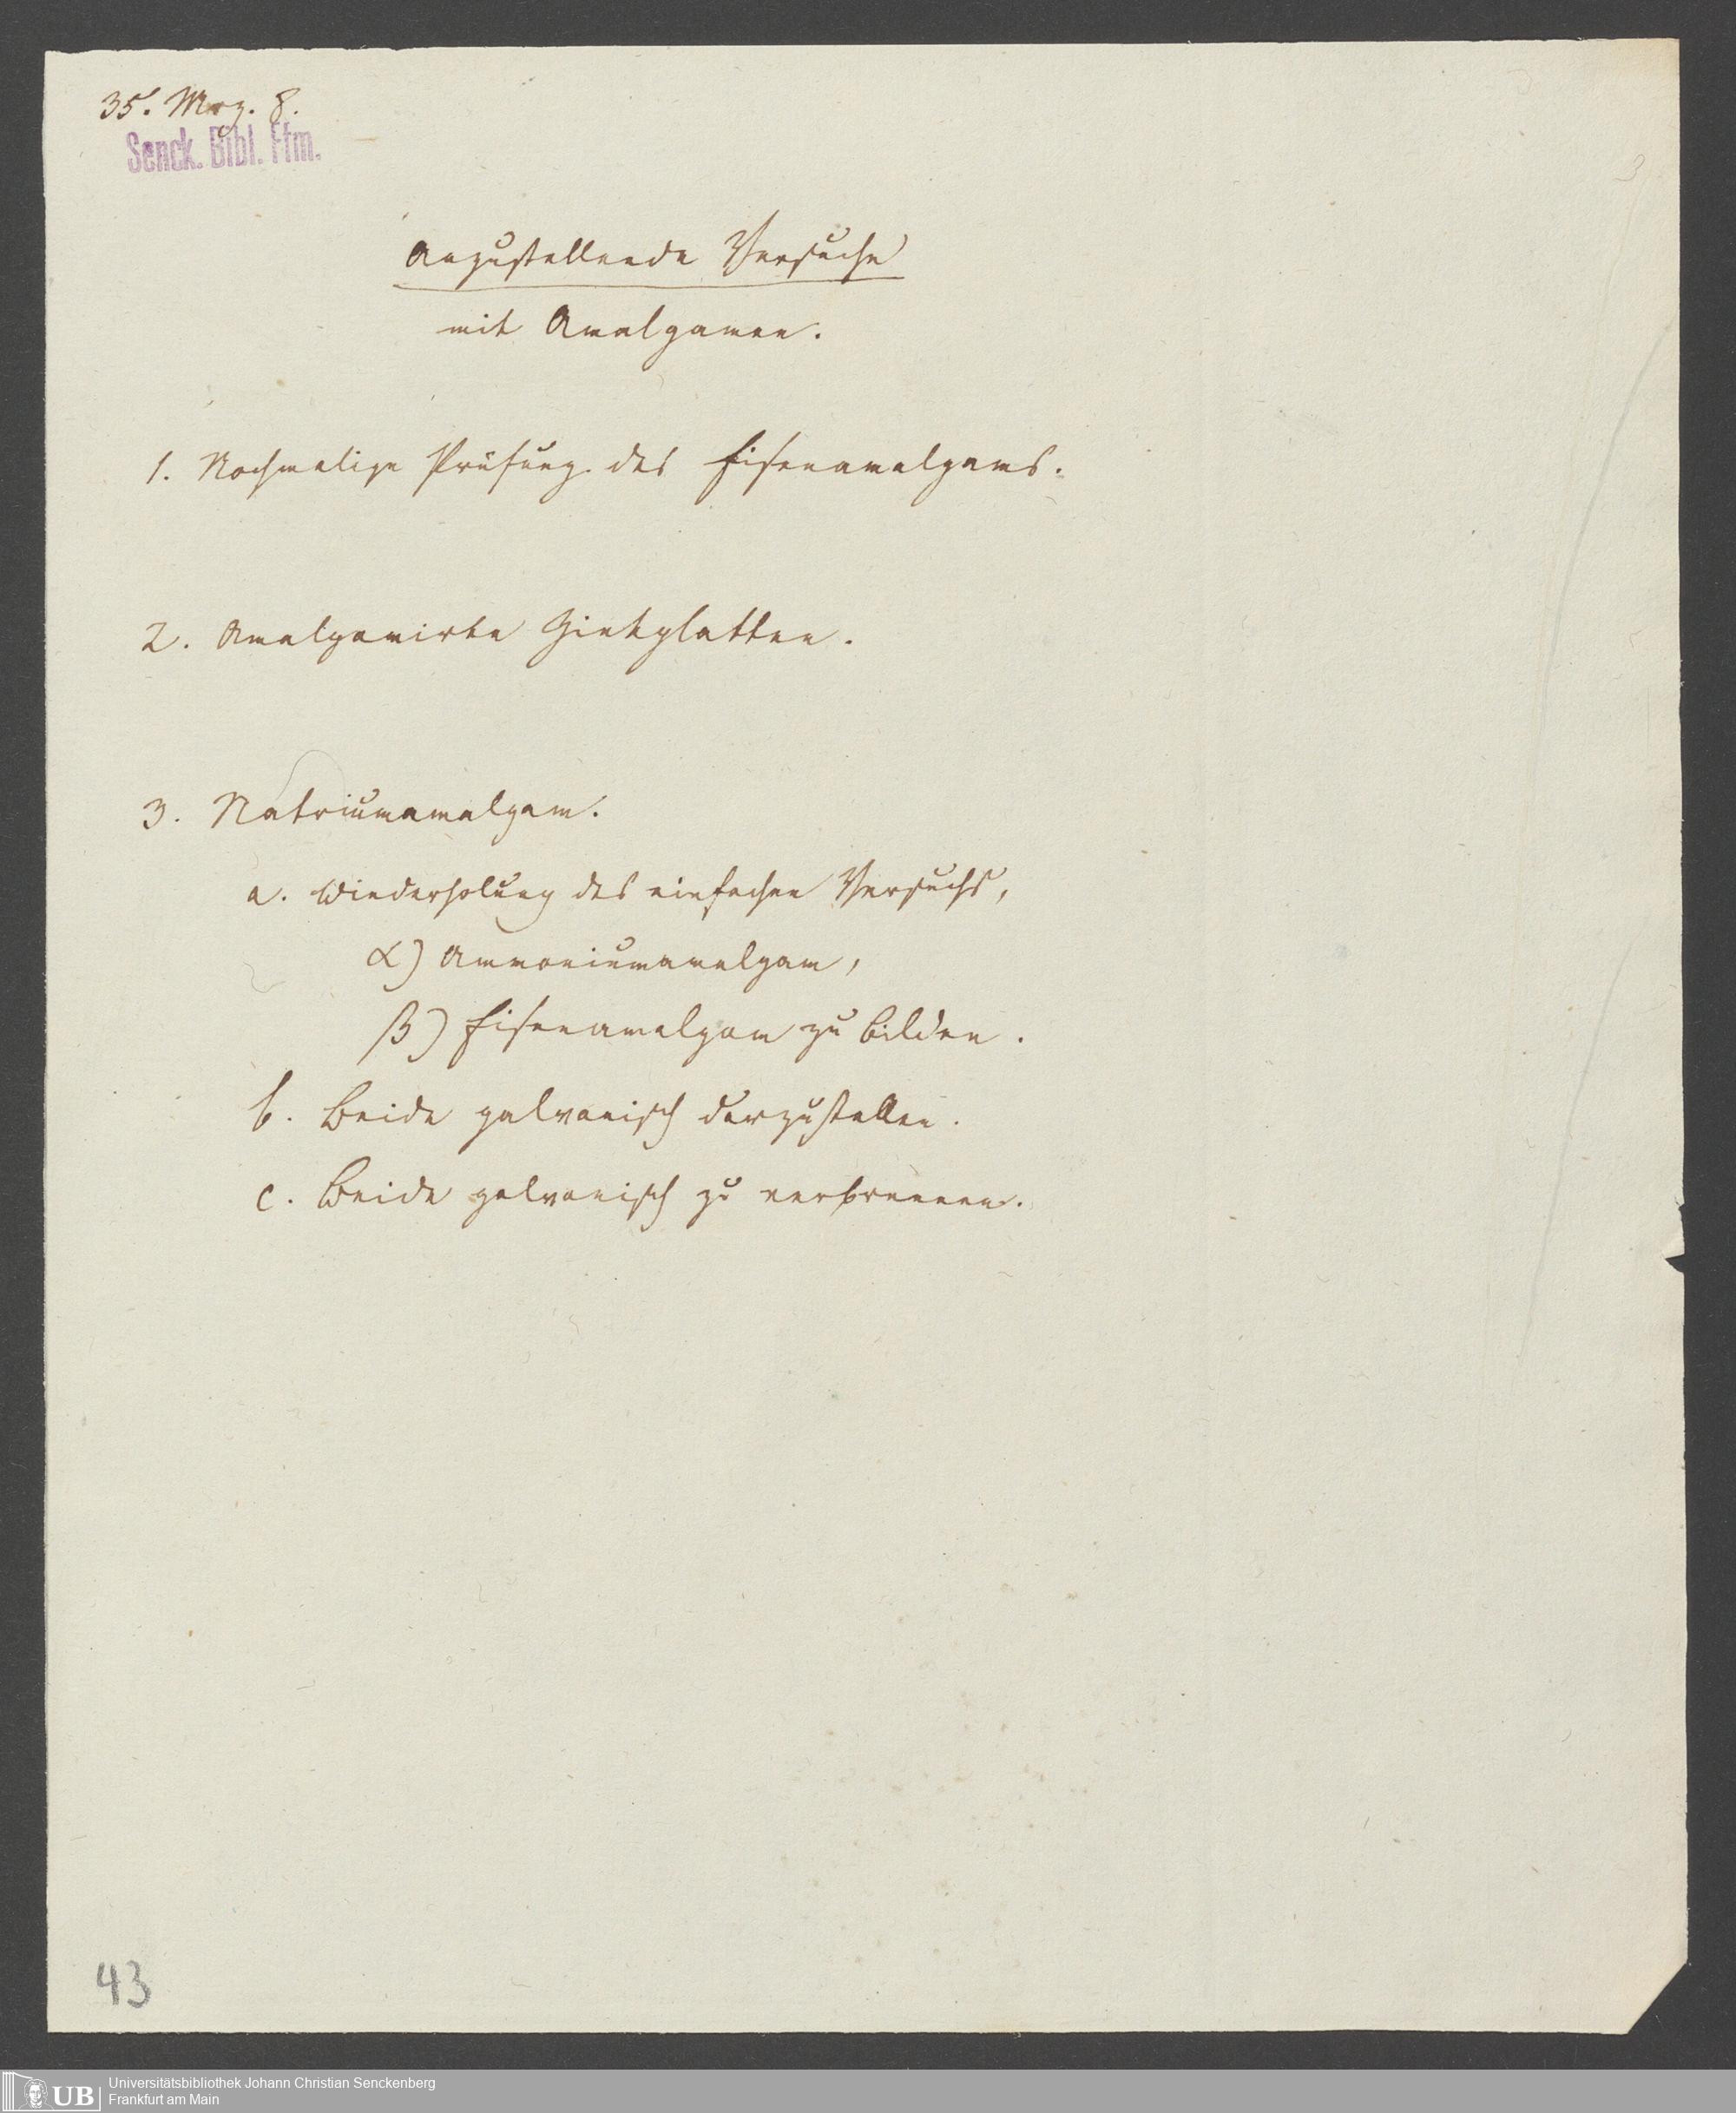 35. Mrz. 8.
Senck. Bibl. Ffm.
Anzustellende Versuche
mit Amalgamen.
1. Nochmalige Prüfung des Eisenamalgams.
2. Amalgamirte Zinkplatten.
3. Natriumamalgam.
a. Wiederholung des einfachen Versuchs,
α) Ammoniumamalgam,
β) Eisenamalgam zu bilden.
b. Beide galvanisch darzustellen.
c. Beide galvanisch zu verbrennen.
43
UB
Universitätsbibliothek Johann Christian Senckenberg
Frankfurt am Main